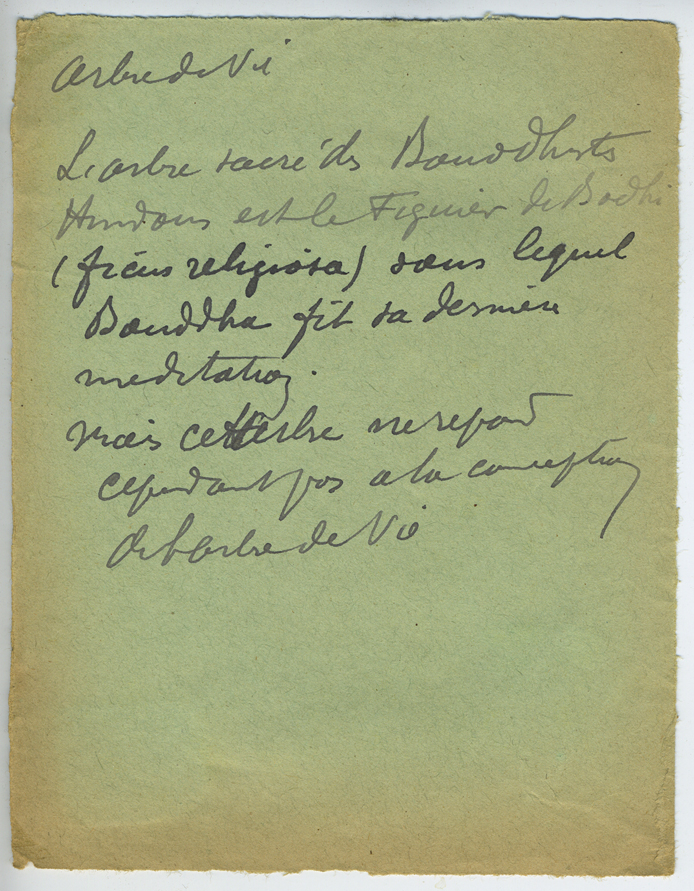 Arbre de Vie
L'arbre sacré des Bouddhistes
Hindous est le Figuier de Bodhi
(ficus religiosa) sous lequel
Bouddha fit sa dernière
meditation.
Mais cet arbre ne repond
cependant pas a la conception
de l'arbre de Vie